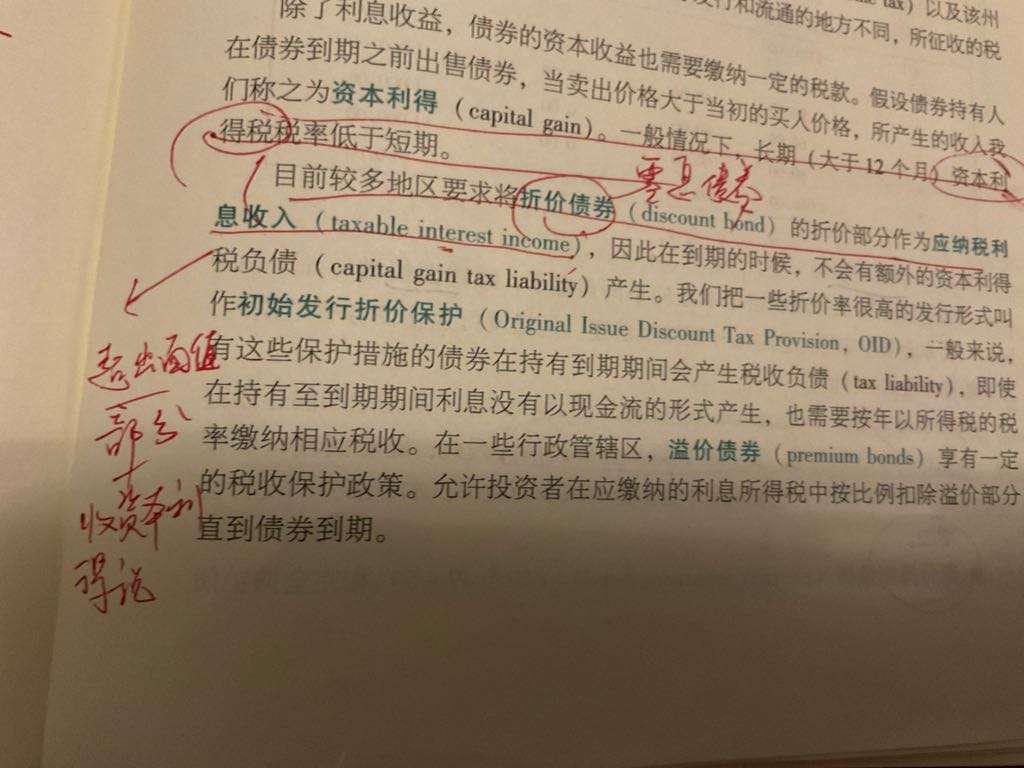 tax）以及该州
发行和流通的地方不同，所征收的税
除了利息收益，债券的资本收益也需要缴纳一定的税款。假设债券持有人
在债券到期之前出售债券，当卖出价格大于当初的买入价格，所产生的收入我
们称之为资本利得（capital gain）。一般情况下，长期（大于12个月）资本利
得税税率低于短期。
零息债券
目前较多地区要求将折价债券（discount bond）的折价部分作为应纳税利
息收入（taxable interest income），因此在到期的时候，不会有额外的资本利得
税负债（capital gain tax liability）产生。我们把一些折价率很高的发行形式叫
作初始发行折价保护（Original Issue Discount Tax Provision, OID），一般来说，
有这些保护措施的债券在持有到期期间会产生税收负债（tax liability），即使
在持有至到期期间利息没有以现金流的形式产生，也需要按年以所得税的税
率缴纳相应税收。在一些行政管辖区，溢价债券（premium bonds）享有一定
的税收保护政策。允许投资者在应缴纳的利息所得税中按比例扣除溢价部分
直到债券到期。
超出面值
部分
收资本利
得税